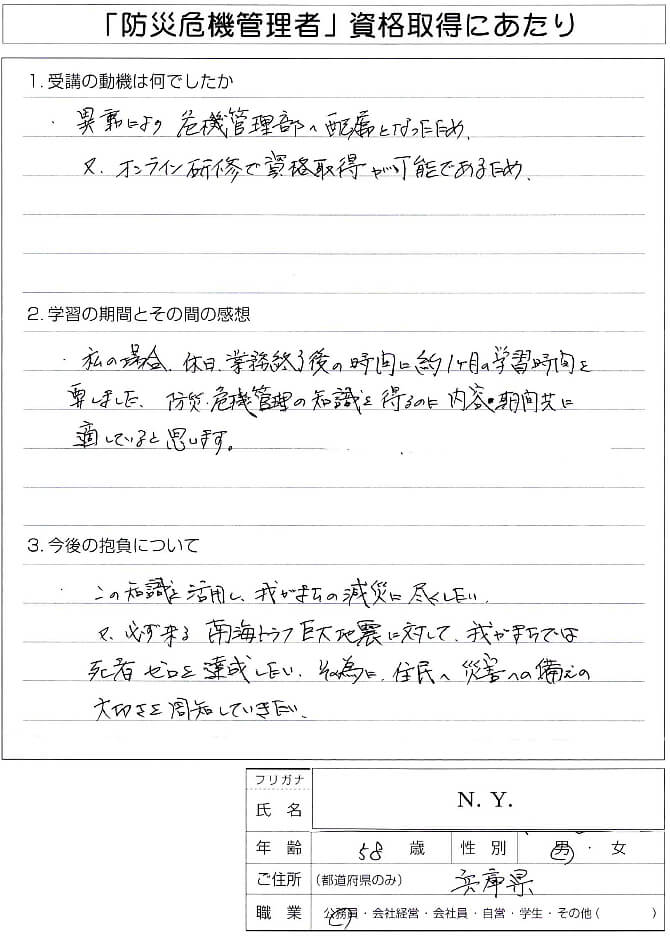 「防災危機管理者」資格取得にあたり
1. 受講の動機は何でしたか
・異動により危機管理部へ配属となったため、
又、オンライン研修で資格取得が可能であるため、
2. 学習の期間とその間の感想
・私の場合、休日、業務終了後の時間に約1ヶ月の学習時間を
要しました、防災・危機管理の知識を得るのに内容・期間共に
適していると思います。
3. 今後の抱負について
・この知識を活用し、我がまちの減災に尽くしたい、
又、必ず来る南海トラフ巨大地震に対して、我がまちでは
死者ゼロを達成したい、その為に、住民へ災害への備えの
大切さを周知していきたい、
フリガナ
氏 名 N. Y.
年 齢 58 歳 性 別 男 ・ 女
ご住所 (都道府県のみ) 兵庫県
職 業 公務員・会社経営・会社員・自営・学生・その他 ( )